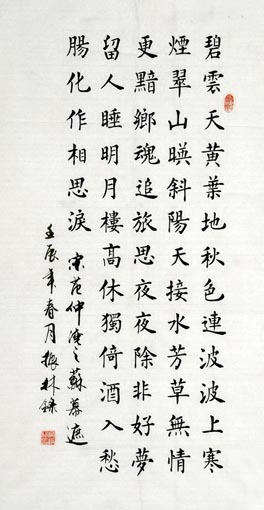 碧雲天黄葉地秋色連波波上寒
煙翠山暎斜陽天接水芳草無情
更黯鄉魂追旅思夜夜除非好夢
留人睡明月樓高休獨倚酒入愁
腸化作相思淚 宋范仲淹之蘇慕遮
壬辰年春月振林録